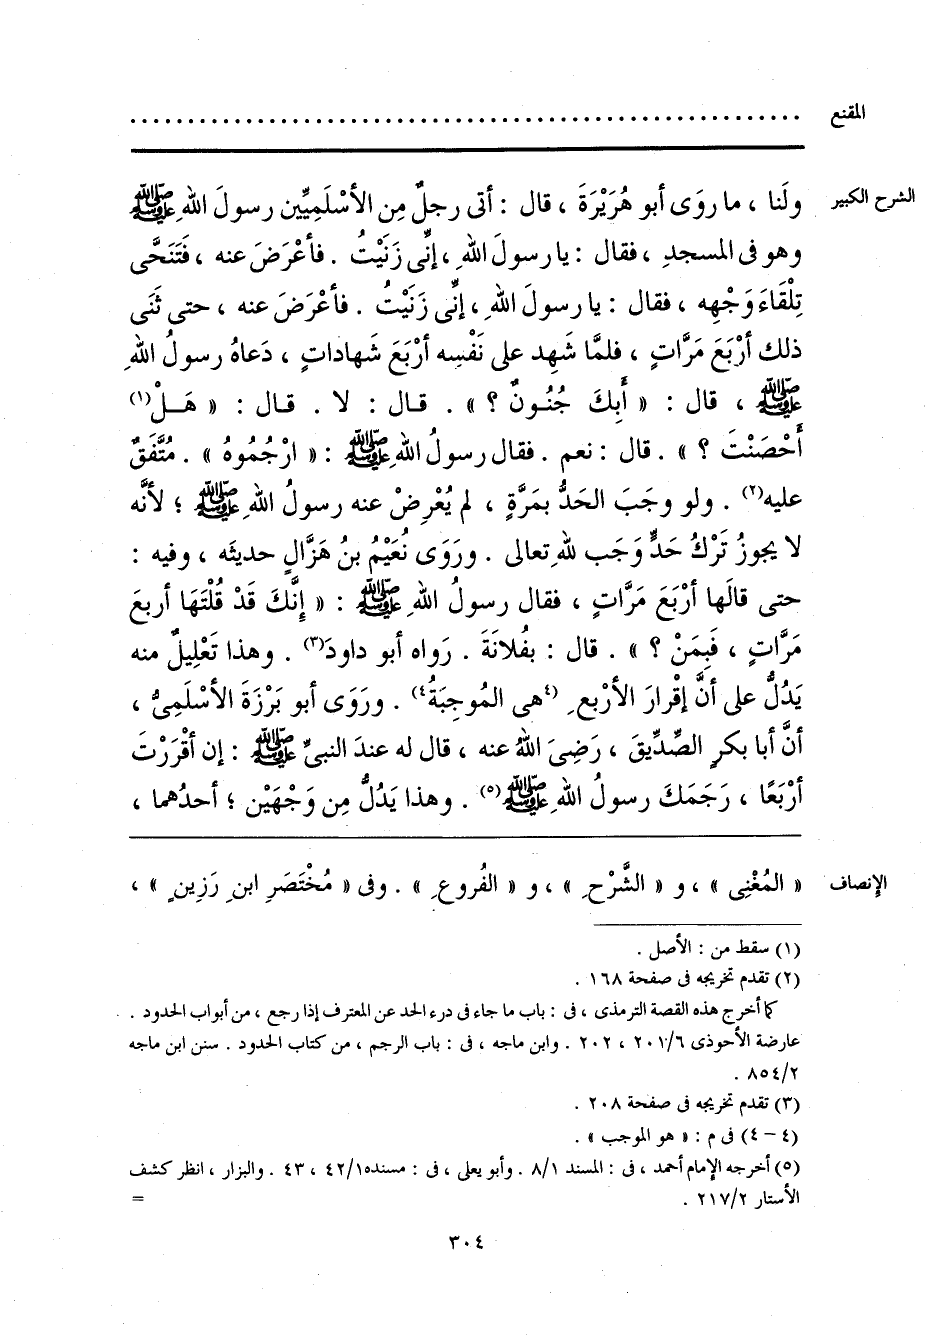 المقنع ........................................................
الشرح الكبير
ولَنا ، ما روَى أبو هُرَيْرَةَ ، قال : أتى رجلٌ مِن الأسْلَمِيِّين رسولَ اللهِ ﷺ
وهو فى المسجدِ ، فقال : يا رسولَ اللهِ ، إنِّى زَنَيْتُ . فأعْرَضَ عنه ، فَتَنَحَّى
تِلْقَاءَ وَجْهِه ، فقال : يا رسولَ اللهِ ، إنِّى زَنَيْتُ . فأعْرَضَ عنه ، حتى ثَنَى
ذلك أرْبَعَ مَرَّاتٍ ، فلمَّا شَهِد على نَفْسِه أرْبَعَ شَهاداتٍ ، دَعاهُ رسولُ اللهِ
ﷺ ، قال : « أَبِكَ جُنُونٌ ؟ » . قال : لا . قال : « هَلْ(١)
أَحْصَنْتَ ؟ » . قال : نعم . فقال رسولُ اللهِ ﷺ : « ارْجُمُوهُ » . مُتَّفَقٌ
عليه(٢) . ولو وجَبَ الحَدُّ بمَرَّةٍ ، لم يُعْرِضْ عنه رسولُ اللهِ ﷺ ؛ لأنَّه
لا يجوزُ تَرْكُ حَدٍّ وَجَب للهِ تعالى . وروَى نُعَيْمُ بنُ هَزَّالٍ حديثَه ، وفيه :
حتى قالَها أرْبَعَ مَرَّاتٍ ، فقال رسولُ اللهِ ﷺ : « إِنَّكَ قَدْ قُلْتَهَا أربعَ
مَرَّاتٍ ، فَبِمَنْ ؟ » . قال : بفُلانَةَ . رَواه أبو داودَ(٣) . وهذا تَعْلِيلٌ منه
يَدُلُّ على أنَّ إقْرارَ الأرْبعِ (٤هى المُوجِبَةُ٤) . وروَى أبو بَرْزَةَ الأسْلَمِىُّ ،
أنَّ أبا بكرٍ الصِّدِّيقَ ، رَضِىَ اللهُ عنه ، قال له عندَ النبىِّ ﷺ : إن أقْرَرْتَ
أرْبَعًا ، رَجَمَكَ رسولُ اللهِ ﷺ(٥) . وهذا يَدُلُّ مِن وَجْهَيْن ؛ أحدُهما ،
الإنصاف
« المُغْنِى » ، و « الشَّرْحِ » ، و « الفُروعِ » . وفى « مُخْتَصَرِ ابنِ رَزِينٍ » ،
(١) سقط من : الأصل .
(٢) تقدم تخريجه فى صفحة ١٦٨ .
كما أخرج هذه القصة الترمذى ، فى : باب ما جاء فى درء الحد عن المعترف إذا رجع ، من أبواب الحدود .
عارضة الأحوذى ٢٠١/٦ ، ٢٠٢ . وابن ماجه ، فى : باب الرجم ، من كتاب الحدود . سنن ابن ماجه
٨٥٤/٢ .
(٣) تقدم تخريجه فى صفحة ٢٠٨ .
(٤ - ٤) فى م : « هو الموجب » .
(٥) أخرجه الإمام أحمد ، فى : المسند ٨/١ . وأبو يعلى ، فى : مسنده ٤٢/١ ، ٤٣ . والبزار ، انظر كشف
الأستار ٢١٧/٢ . =
٣٠٤